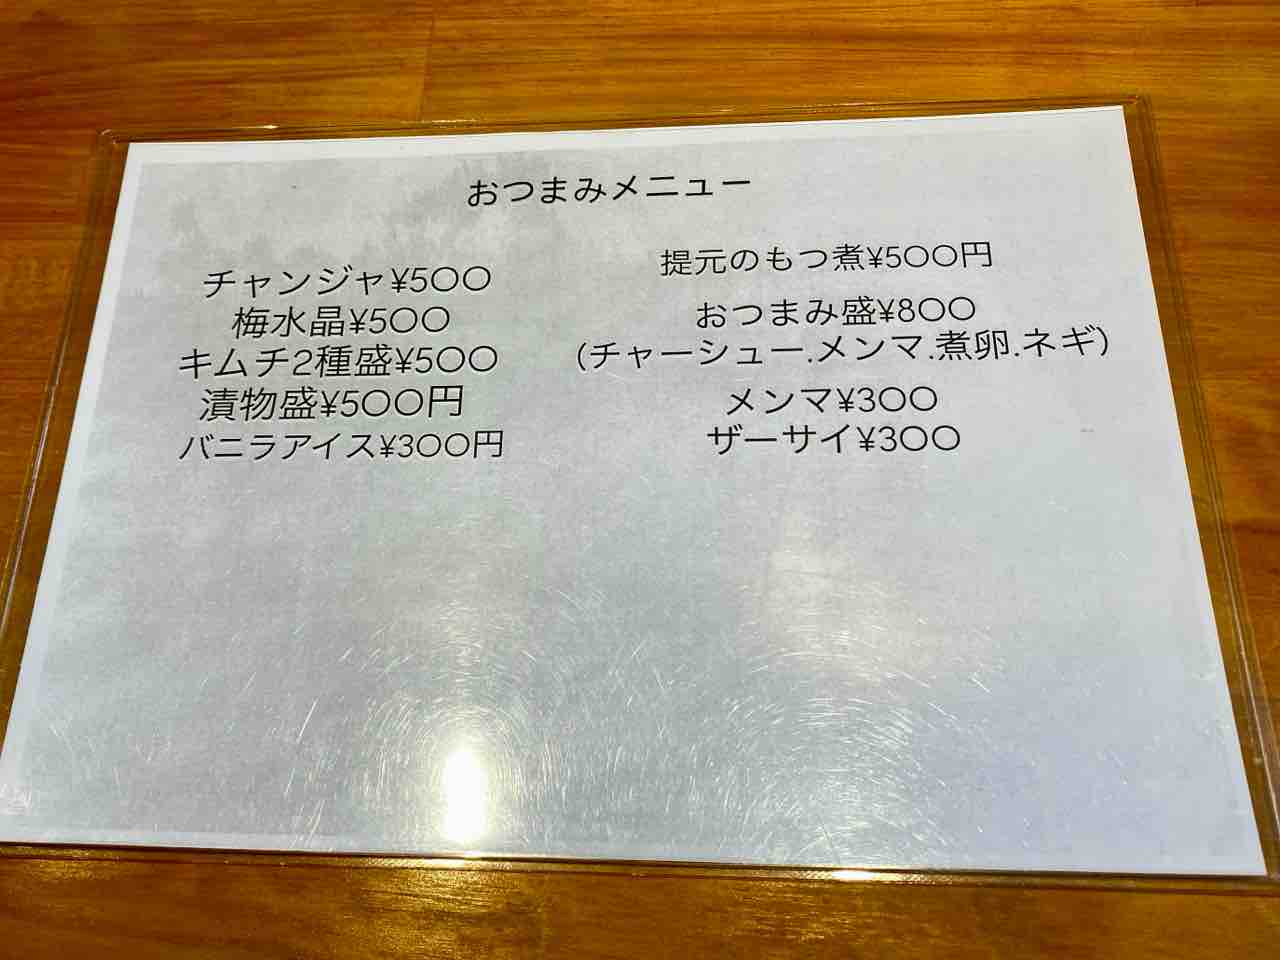 おつまみメニュー
チャンジャ¥500
梅水晶¥500
キムチ2種盛¥500
漬物盛¥500円
バニラアイス¥300円
提元のもつ煮¥500円
おつまみ盛¥800
(チャーシュー.メンマ.煮卵.ネギ)
メンマ¥300
ザーサイ¥300